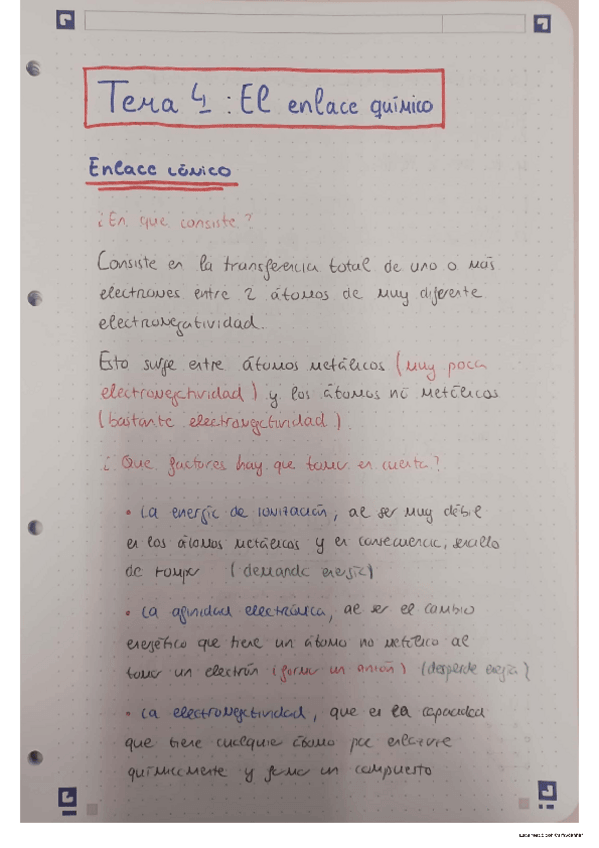 Tema 4 : El enlace químico
Enlace iónico
¿En que consiste?
Consiste en la transferencia total de uno o más
electrones entre 2 átomos de muy diferente
electronegatividad.
Esto surge entre átomos metálicos (muy poca
electronegatividad) y los átomos no metálicos
(bastante electronegatividad).
¿Que factores hay que tomar en cuenta?
• La energía de ionización, al ser muy débil
en los átomos metálicos y en consecuencia, sencillo
de romper (demanda energía)
• La afinidad electrónica, al ser el cambio
energético que tiene un átomo no metálico al
tomar un electrón (formar un anión) (desprende energía)
• La electronegatividad, que es la capacidad
que tiene cualquier átomo para enlazarse
químicamente y formar un compuesto